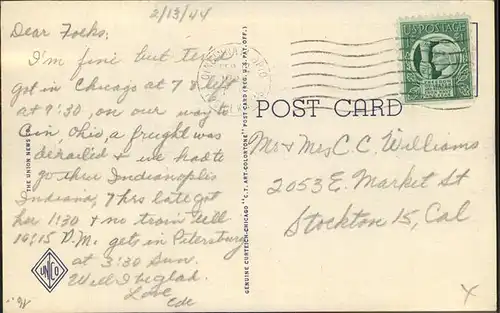 2/13/44
Dear Folks:
I'm fine but
got in Chicago at 7 & left
at 9:30, on our way to
Cin, Ohio, a freught was
derailed & we had to
go thru Indianoplis
Indiana, 7 hrs late got
her 1:30 & no train till
10:15 P.M. gets in Petersburg
at 3:30 Sun.
Will I be glad.
Love
U.S. POSTAGE
POST CARD
Mr & Mrs C. C. Williams
2053 E. Market St
Stockton 15, Cal
THE UNION NEWS
UNCO
GENUINE CURTEICH-CHICAGO "C.T. ART-COLORTONE" POST CARD (REG. U.S. PAT. OFF.)
X